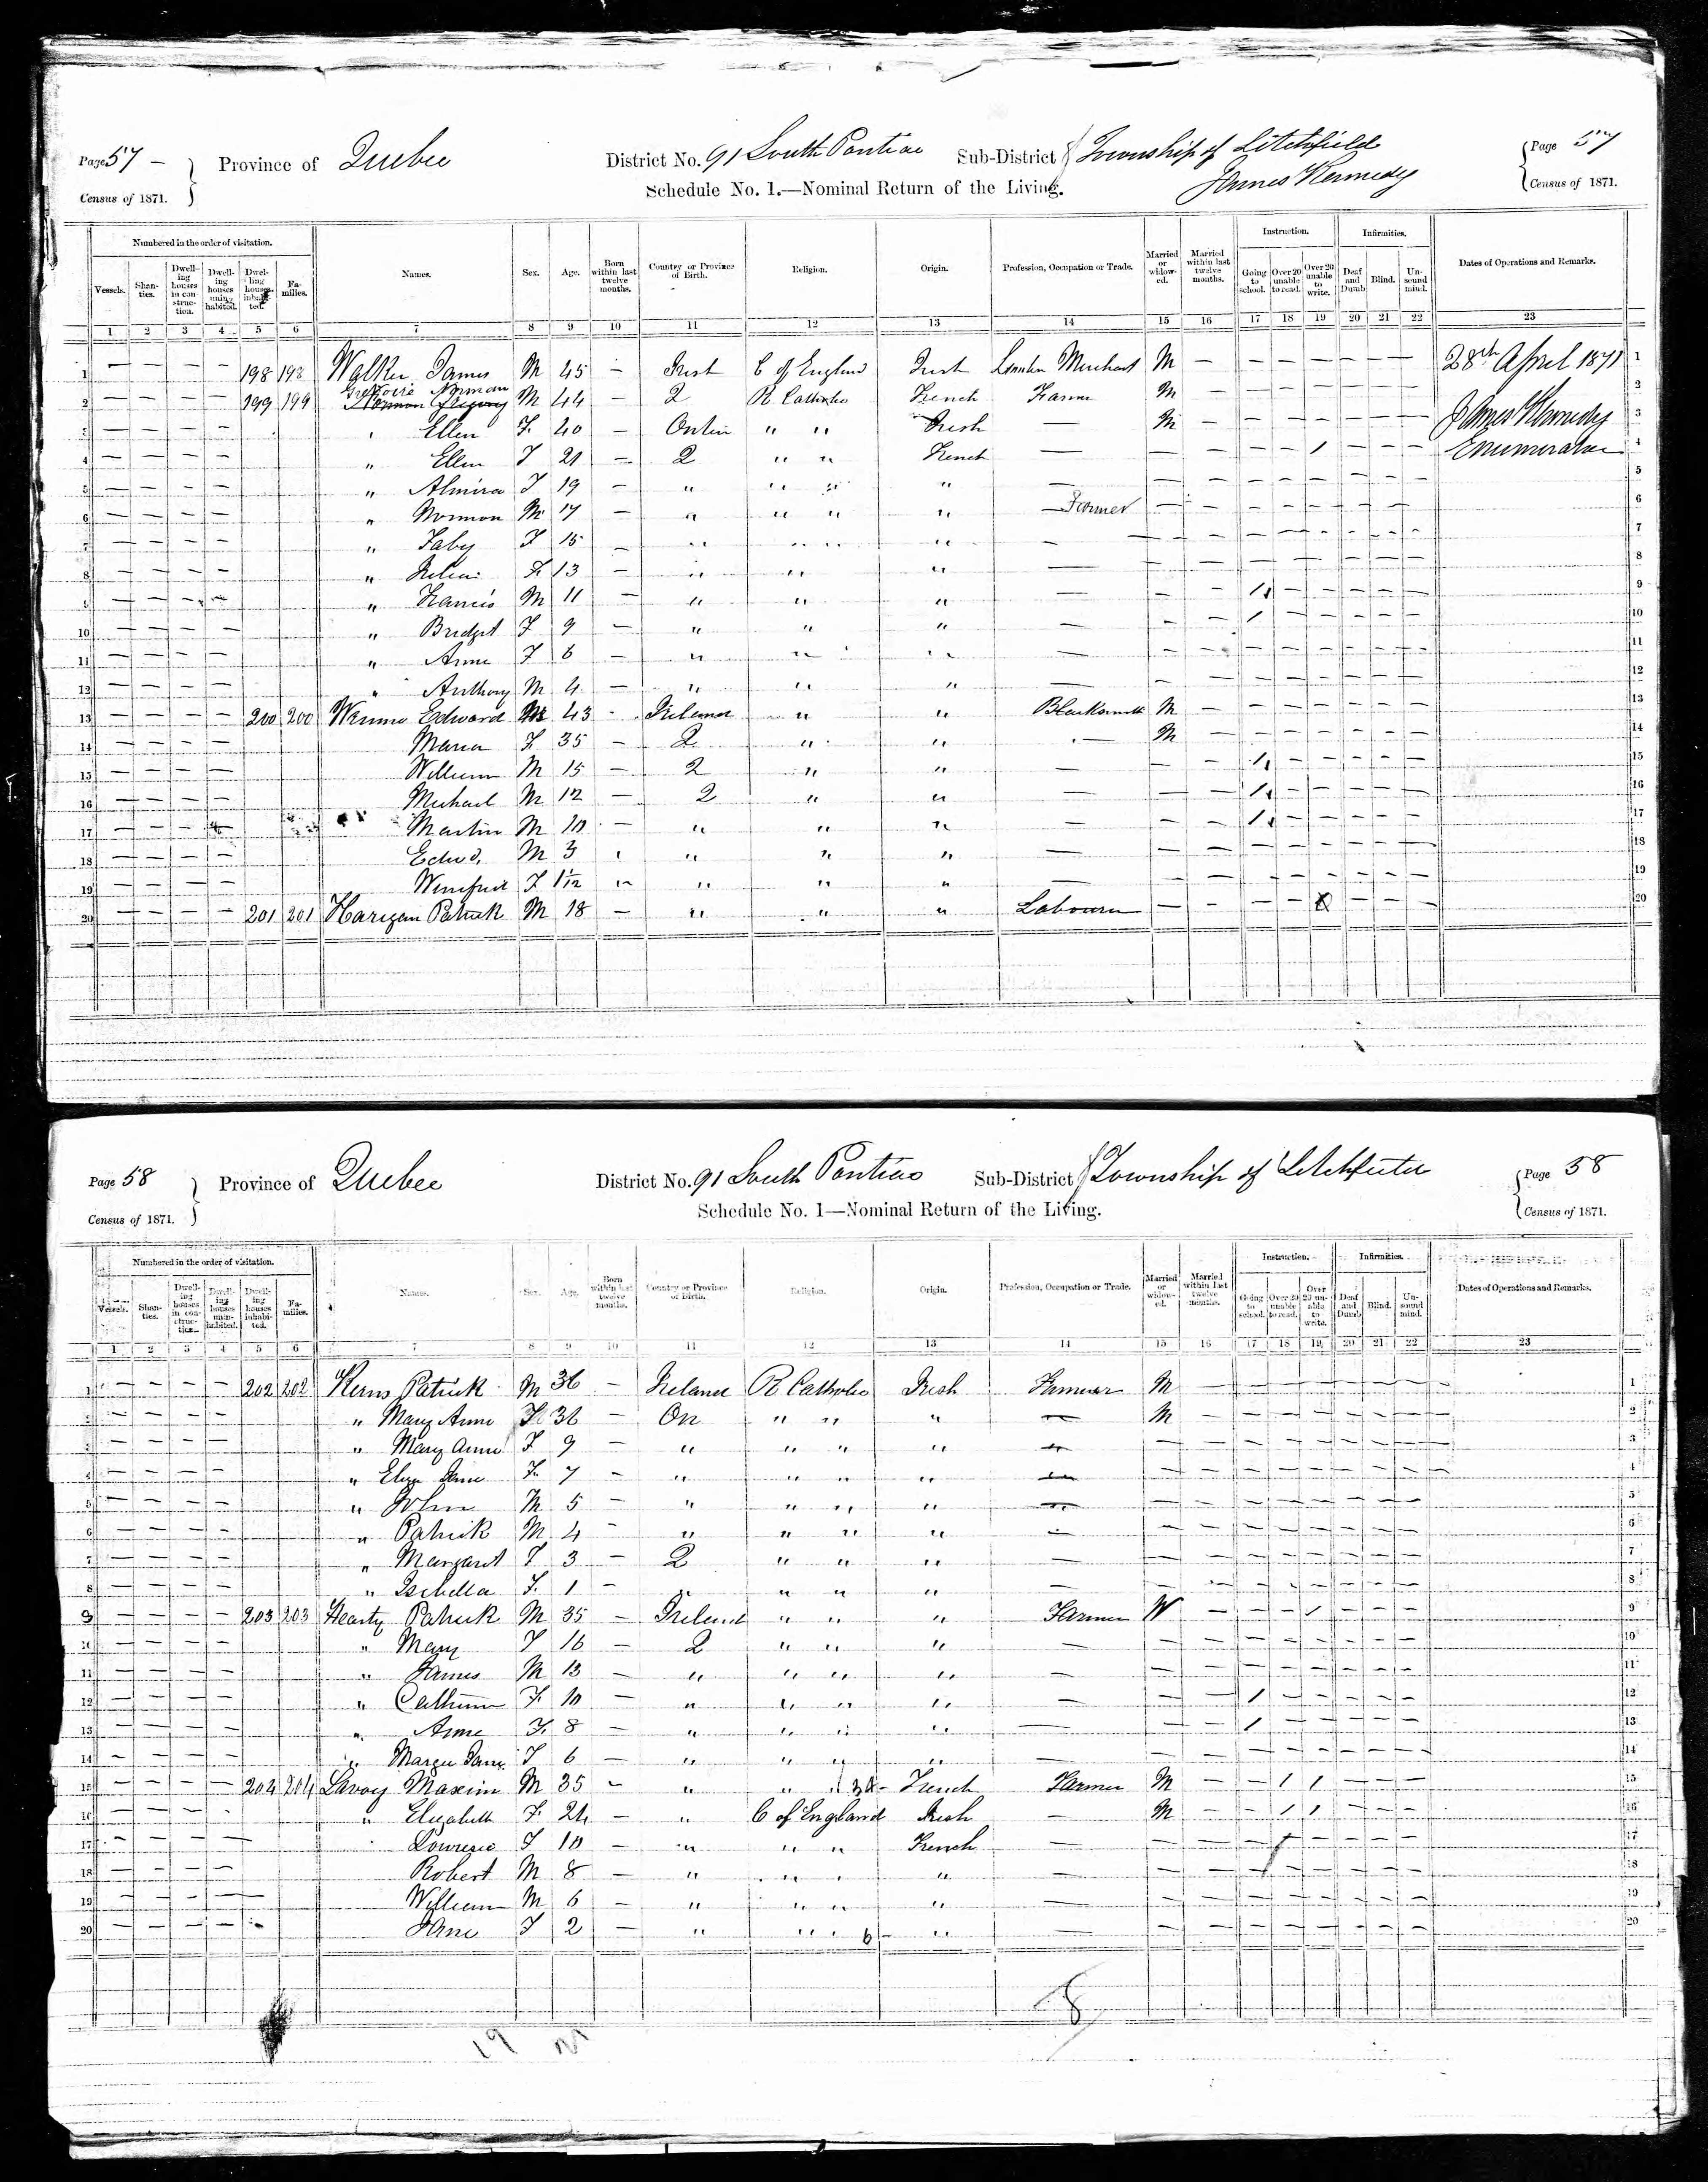 Page 57 - Province of Quebec District No. 91 South Pontiac Sub-District Township of Litchfield Page 57
Census of 1871. Schedule No. 1.—Nominal Return of the Living. James Kennedy Census of 1871.
Numbered in the order of visitation. Instruction. Infirmities.
Vessels. Shanties. Dwelling houses in construction. Dwelling houses uninhabited. Dwelling houses inhabited. Families. Names. Sex. Age. Born within last twelve months. Country or Province of Birth. Religion. Origin. Profession, Occupation or Trade. Married or widowed. Married within last twelve months. Going to school. Over 20 unable to read. Over 20 unable to write. Deaf and Dumb Blind. Unsound mind. Dates of Operations and Remarks.
1 2 3 4 5 6 7 8 9 10 11 12 13 14 15 16 17 18 19 20 21 22 23
1 — — — — 198 198 Walker James M 45 — Irish C of England Irish Merchant M — — — — — — — 28th April 1871 1
Gregoire Norman
2 — — — — 199 199 Norman Gregory M 44 — Q R Catholic French Farmer M — — — — — — — 2
3 — — — — Ellen F 40 — " " Irish — M — — — — — — — James Kennedy 3
4 — — — — " Ellen F 21 — Q " " French — — — — — 1 — — — Enumerator 4
5 — — — — " Almira F 19 — " " " " — — — — — — — — — 5
6 — — — — " Norman M 17 — " " " " — Farmer — — — — — — — — 6
7 — — — — " F 15 — " " " " — — — — — — — — — 7
8 — — — — " F 13 — " " " — — — — — — — — — 8
9 — — — — " Francis M 11 — " " " — — — 1 — — — — — 9
10 — — — — " Bridget F 9 — " " " — — — 1 — — — — — 10
11 — — — — " Anne F 6 — " " " — — — — — — — — — 11
12 — — — — " Anthony M 4 — " " " — — — — — — — — — 12
13 — — — — 200 200 Edward M 43 - Ireland " " Blacksmith M — — — — — — — 13
14 — — — — Maria F 35 — Q " " — M — — — — — — — 14
15 — — — — William M 15 — Q " " — — — 1 — — — — — 15
16 — — — — Michael M 12 — Q " " — — — 1 — — — — — 16
17 — — — — Martin M 10 — " " " — — — 1 — — — — — 17
18 — — — — Edwd. M 3 " " " " — — — — — — — — — 18
19 — — — — Winifred F 1/12 " " " " — — — — — — — — — 19
20 — — — — 201 201 Harigan Patrick M 18 — " " " Labourer — — — — — — — 20
Page 58 Province of Quebec District No. 91 South Pontiac Sub-District Township of Page 58
Census of 1871. Schedule No. 1—Nominal Return of the Living. Census of 1871.
Numbered in the order of visitation. Instruction. Infirmities.
Vessels. Shanties. Dwelling houses in construction. Dwelling houses uninhabited. Dwelling houses inhabited. Families. Names. Sex. Age. Born within last twelve months. Country or Province of Birth. Religion. Origin. Profession, Occupation or Trade. Married or widowed. Married within last twelve months. Going to school. Over 20 unable to read. Over 20 unable to write. Deaf and Dumb Blind. Unsound mind. Dates of Operations and Remarks.
1 2 3 4 5 6 7 8 9 10 11 12 13 14 15 16 17 18 19 20 21 22 23
1 — — — — 202 202 Kerns Patrick M 36 — Ireland R Catholic Irish Farmer M — — — — — — — 1
2 — — — — " Mary Anne F 36 — On " " " — M — — — — — — — 2
3 — — — — " Mary Anne F 9 — " " " " — — — — — — — — — 3
4 — — — — " Eliza Jane F 7 — " " " " — — — — — — — — — 4
5 — — — — " John M 5 — " " " " — — — — — — — — — 5
6 — — — — " Patrick M 4 — " " " " — — — — — — — — — 6
7 — — — — " Margaret F 3 — Q " " " — — — — — — — — — 7
8 — — — — " Isabella F 1 — " " " " — — — — — — — — — 8
9 — — — — 203 203 Hearty Patrick M 35 — Ireland " " " Farmer W — — — 1 — — — 9
10 — — — — " Mary F 16 — Q " " " — — — — — — — — — 10
11 — — — — " James M 13 — " " " " — — — — — — — — — 11
12 — — — — " F 10 — " " " " — — — 1 — — — — — 12
13 — — — — " Anne F 8 — " " " " — — — 1 — — — — — 13
14 — — — — " Jane F 6 — " " " " — — — — — — — — — 14
15 — — — — 204 204 Lavoy Maxim M 35 — " " " French Farmer M — — 1 1 — — — 15
16 — — — — " Elizabeth F 24 — " C of England Irish — M — — 1 1 — — — 16
17 — — — — F 10 — " " " French — — — — — — — — — 17
18 — — — — Robert M 8 — " " " " — — — — — — — — — 18
19 — — — — William M 6 — " " " " — — — — — — — — — 19
20 — — — — Jane F 2 — " " " 6 " — — — — — — — — — 20
8
19